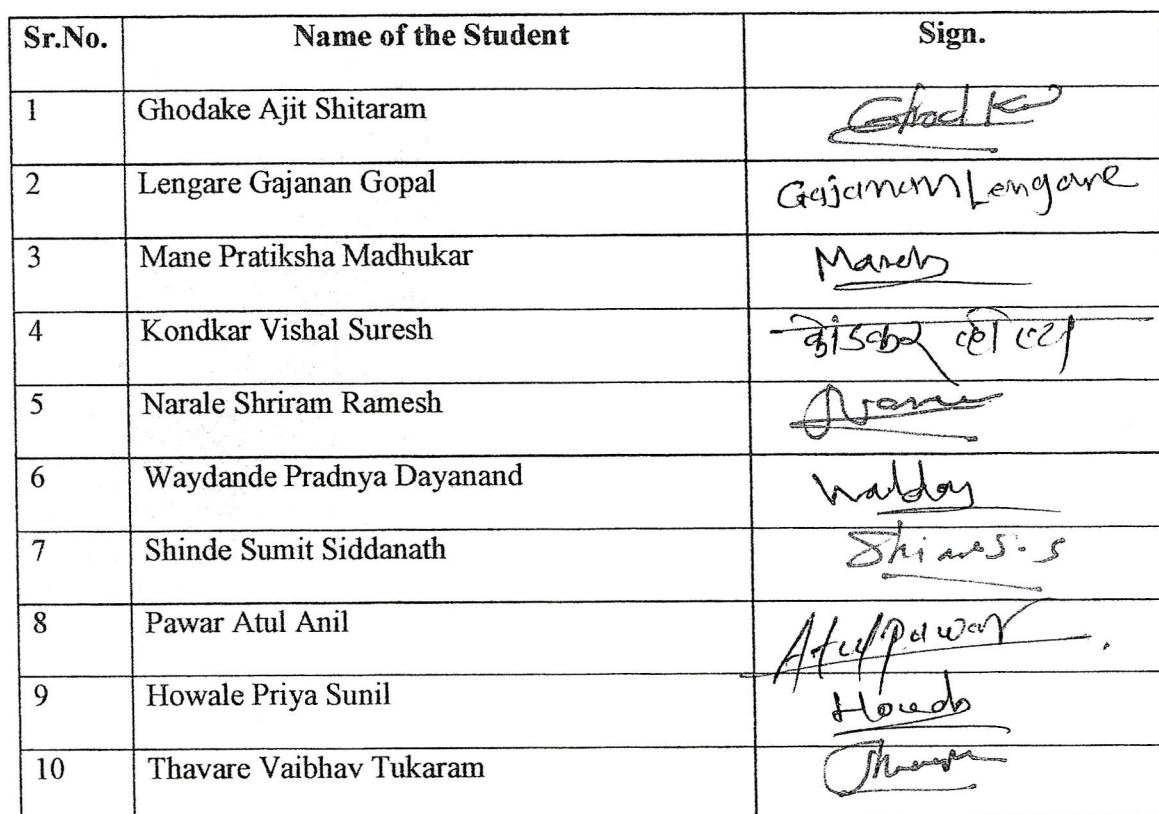 Sr.No. Name of the Student Sign.
1 Ghodake Ajit Shitaram
2 Lengare Gajanan Gopal Gajanan Lengare
3 Mane Pratiksha Madhukar
4 Kondkar Vishal Suresh कोंडकर
5 Narale Shriram Ramesh
6 Waydande Pradnya Dayanand
7 Shinde Sumit Siddanath
8 Pawar Atul Anil Atul Pawar
9 Howale Priya Sunil
10 Thavare Vaibhav Tukaram